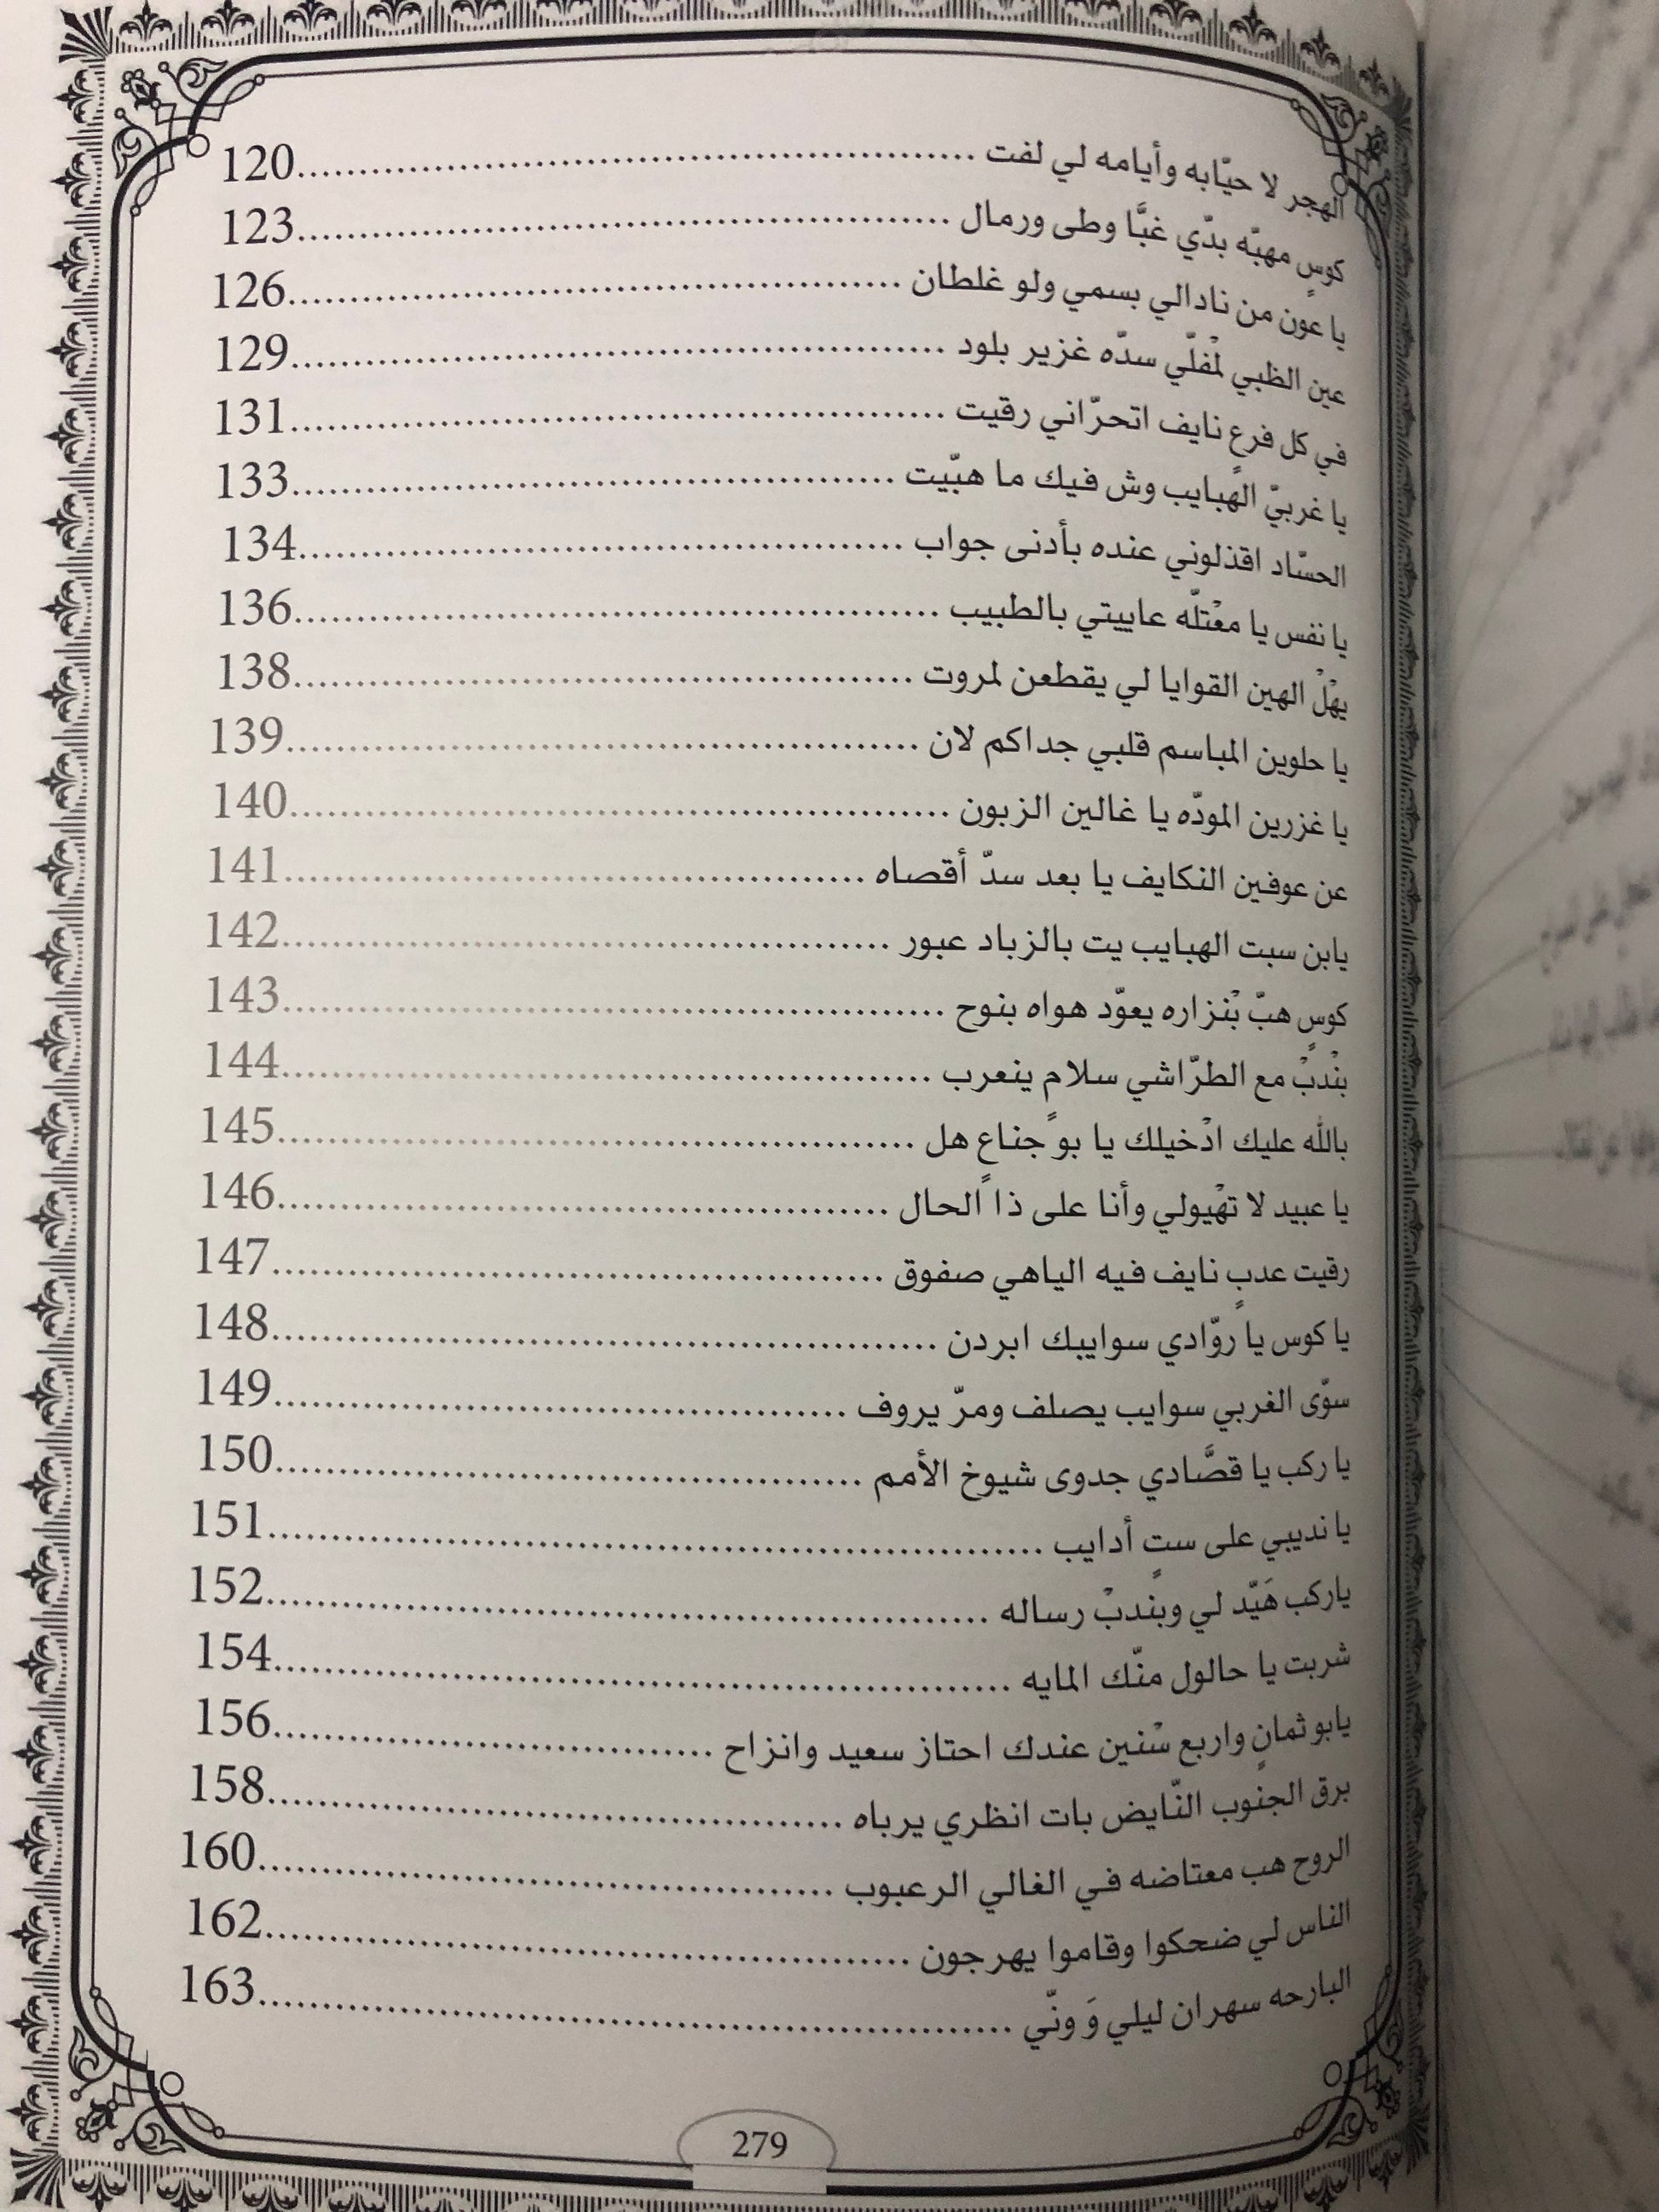 الهجر لا حيّابه وأيامه لي لفت ........ 120
كوسٍ مهبّه بدّي غبًّا وطى ورمال ........ 123
يا عون من نادالي بسمي ولو غلطان ........ 126
عين الظبي لمْفلّي سدّه غزير بلود ........ 129
في كل فرعٍ نايف اتحرّاني رقيت ........ 131
يا غربيّ الهبايب وش فيك ما هبّيت ........ 133
الحسّاد اقذلوني عنده بأدنى جواب ........ 134
يا نفس يا معْتلّه عاييتي بالطبيب ........ 136
يهْلْ الهين القوايا لي يقطعن لمروت ........ 138
يا حلوين المباسم قلبي جداكم لان ........ 139
يا غزرين المودّه يا غالين الزبون ........ 140
عن عوفين النكايف يا بعد سدّ أقصاه ........ 141
يابن سبت الهبايب يت بالزباد عبور ........ 142
كوسٍ هبّ بْنزاره يعوّد هواه بنوح ........ 143
بنْدبْ مع الطرّاشي سلامٍ ينعرب ........ 144
بالله عليك ادْخيلك يا بو جناعٍ هل ........ 145
يا عبيد لا تهْيولي وأنا على ذا الحال ........ 146
رقيت عدبٍ نايف فيه الياهي صفوق ........ 147
يا كوس يا روّادي سوايبك ابردن ........ 148
سوّى الغربي سوايب يصلف ومرّ يروف ........ 149
يا ركب يا قصَّادي جدوى شيوخ الأمم ........ 150
يا نديبي على ستٍ أدايب ........ 151
ياركب هَيّد لي وبنْدبْ رساله ........ 152
شربت يا حالول منّك المايه ........ 154
يابو ثمانٍ واربع سْنين عندك احتاز سعيد وانزاح ........ 156
برق الجنوب النّايض بات انظري يرباه ........ 158
الروح هب معتاضه في الغالي الرعبوب ........ 160
الناس لي ضحكوا وقاموا يهرجون ........ 162
البارحه سهران ليلي وَ ونّي ........ 163
279